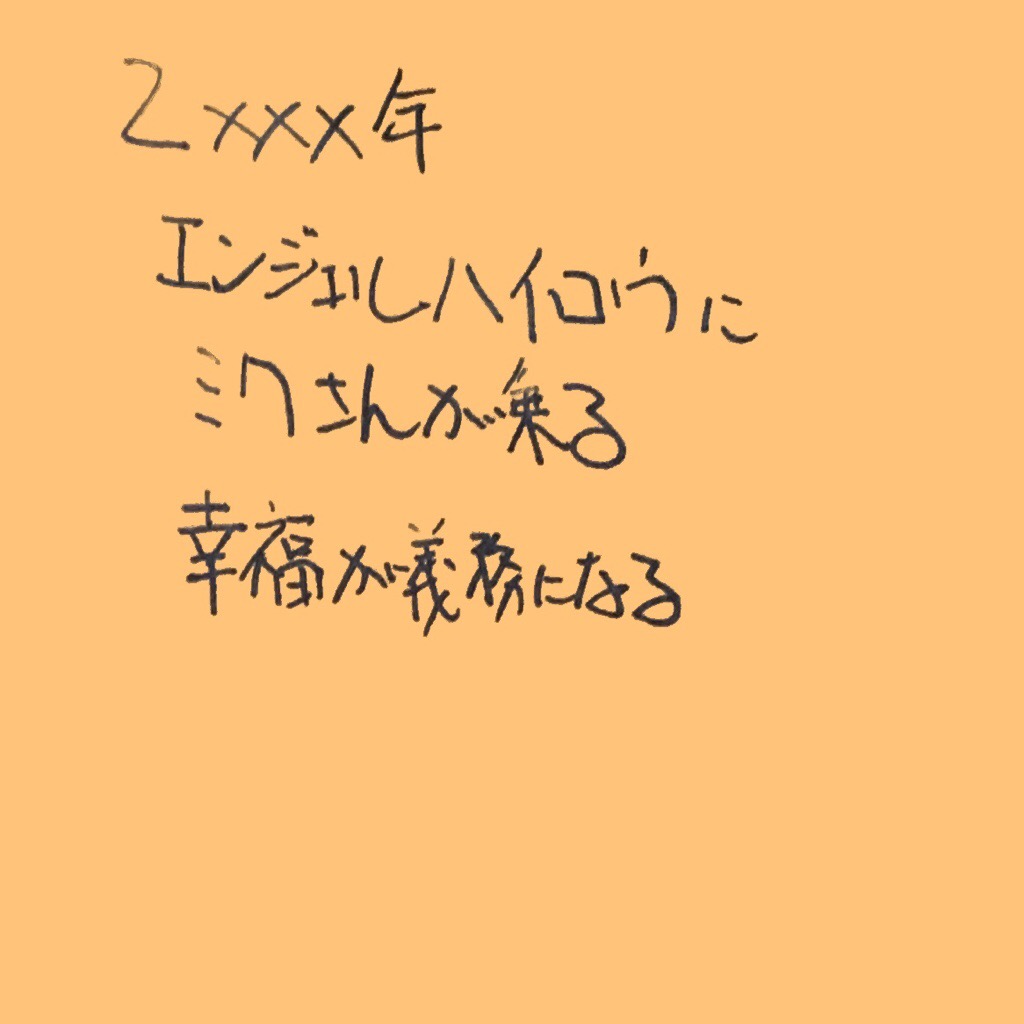 2xxx年
エンジェルハイロウに
ミクさんが乗る
幸福が義務になる